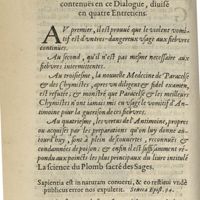 contenues en ce Dialogue, diuisé
en quatre Entretiens.
AV premier, il est prouué que le violent vomi-
tif est d'vn tres-dangereux vsage aux fiebvres
continues.
Au second, qu'il n'est pas mesme necessaire aux
fiebvres intermittentes.
Au troisiesme, la nouuelle Medecine de Paracelse
& des Chymistes, apres vn diligent & fidel examen,
est refutée; & monstre que Paracelse & les meilleurs
Chymistes n'ont iamais mis en vsage le vomitif d'An-
timoine pour la guerison de ces fiebvres.
Au quatriesme, les vertus de l'Antimoine, propres
ou acquises par les preparations qu'on luy donne au-
iourd'huy, sont à plein descouuertes, reconnuës &
condamnées de poison; & enfin est suffisamment res-
pondu aux poincts les plus principaux du liure intitulé
La science du Plomb sacré des Sages.
Sapientia est in naturam conuerti, & eo restitui vnde
publicus error nos expulerit. Seneca Epist. 94.